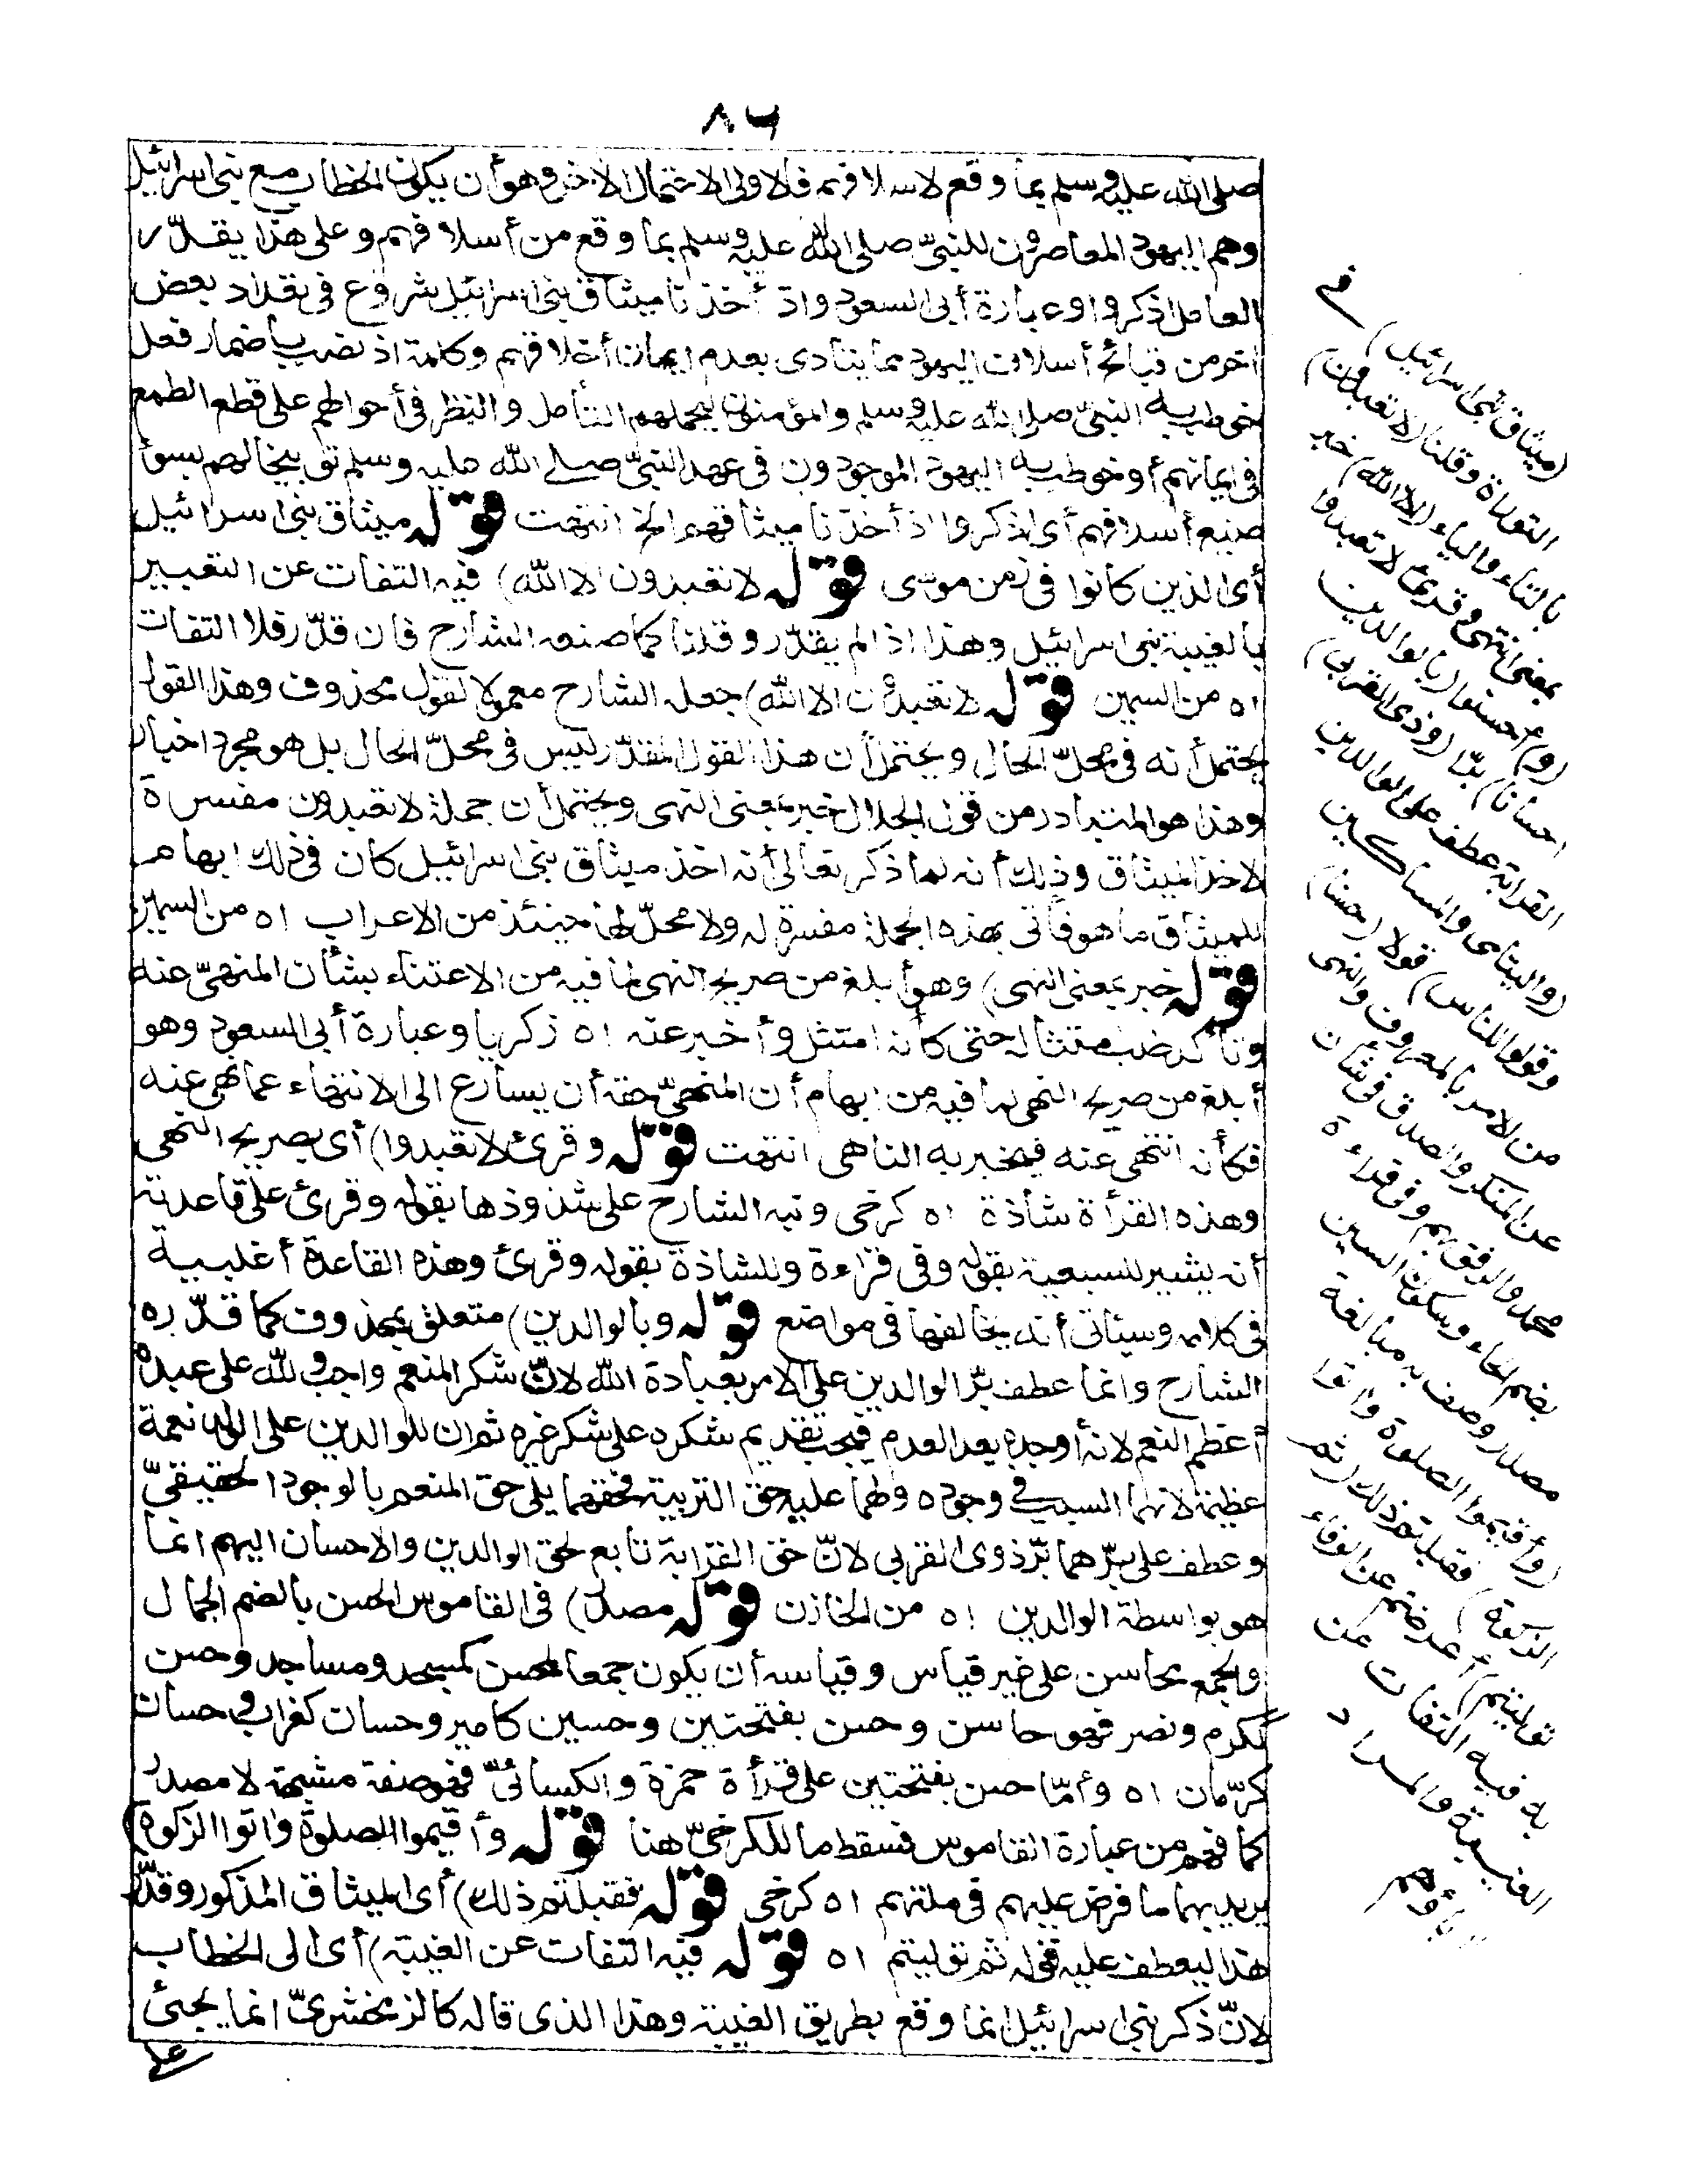 ٨٦
صلى الله عليه وسلم بما وقع لاسلافهم فالاولى الاحتمال الاخر وهو أن يكون الخطاب مع بنى اسرائيل
وهم اليهود المعاصرون للنبىّ صلى الله عليه وسلم بما وقع من أسلافهم وعلى هذا يقدّر
العامل اذكروا وعبارة أبى السعود واذ أخذنا ميثاق بنى اسرائيل شروع فى تعداد بعض
اخر من قبائح أسلاف اليهود مما ينادى بعدم ايمان أخلافهم وكلمة اذ نصب باضمار فعل
خوطب به النبىّ صلى الله عليه وسلم والمؤمنون ليحملهم التأمل والنظر فى أحوالهم على قطع الطمع
فى ايمانهم أو خوطب به اليهود الموجودون فى عهد النبىّ صلے الله عليه وسلم توبيخا لهم بسوأ
صنيع أسلافهم أى اذكروا اذ أخذنا ميثاقهم الخ انتهت قوله ميثاق بنى اسرائيل
أى الذين كانوا فى زمن موسى قوله لا تعبدون الا الله) فيه التفات عن التعبير
بالغيبة بنى اسرائيل وهذا اذا لم يقدّر وقلنا كما صنعه الشارح فان قدّر فلا التفات
اه من السمين قوله لا تعبدون الا الله) جعله الشارح معمولا لقول محذوف وهذا القول
يحتمل أنه فى محلّ الحال ويحتمل أن هذا القول المقدّر ليس فى محلّ الحال بل هو مجرد اخبار
وهذا هو المتبادر من قول الجلال خبر بمعنى النهى ويحتمل أن جملة لا تعبدون مفسرة
لاخذ الميثاق وذلك أنه لما ذكر تعالى أنه اخذ ميثاق بنى اسرائيل كان فى ذلك ابهام
للميثاق ما هو فأتى بهذه الجملة مفسرة له ولا محلّ لها حينئذ من الاعراب اه من السمين
قوله خبر بمعنى النهى) وهو أبلغ من صريح النهى لما فيه من الاعتناء بشأن المنهىّ عنه
وتأكد طلب امتثاله حتى كأنه امتثل وأخبر عنه اه زكريا وعبارة أبى السعود وهو
أبلغ من صريح النهى لما فيه من ابهام أن المنهىّ حقه أن يسارع الى الانتهاء عما نهى عنه
فكأنه انتهى عنه فيخبر به الناهى انتهت قوله وقرئ لا تعبدوا) أى بصريح النهى
وهذه القرأة شأذة اه كرخى ونبه الشارح على شذوذها بقوله وقرئ على قاعدته
أنه يشير للسبعية بقوله وفى قراءة وللشاذة بقوله وقرئ وهذه القاعدة أغلبية
فى كلامه وسيأتى أنه يخالفها فى مواضع قوله وبالوالدين) متعلق بمحذوف كما قدّره
الشارح وانما عطف برّ الوالدين على الامر بعبادة الله لانّ شكر المنعم واجب ولله على عبده
أعظم النعم لانه أوجده بعد العدم فيجب تقديم شكره على شكر غيره ثم ان للوالدين على الولد نعمة
عظيمة لانهما السبب فى وجوده ولهما عليه حق التربية فحقهما يلى حق المنعم بالوجود الحقيقىّ
وعطف على برّهما برّ ذوى القربى لانّ حق القرابة تابع لحق الوالدين والاحسان اليهم انما
هو بواسطة الوالدين اه من الخازن قوله مصدر) فى القاموس الحسن بالضم الجمال
والجمع محاسن على غير قياس وقياسه أن يكون جمعا لمحسن كمسجد ومساجد وحسن
ككرم ونصر فهو حاسن وحسن بفتحتين وحسين كامير وحسان كغراب وحسان
كرّمان اه وأمّا حسن بفتحتين على قرأة حمزة والكسائىّ فهو صفة مشبهة لا مصدر
كما فهم من عبارة القاموس فسقط ما للكرخىّ هنا قوله وأقيموا الصلوة واتوا الزكوة)
يريد بهما ما فرض عليهم فى ملتهم اه كرخى قوله فقبلتم ذلك) أى الميثاق المذكور وقدّر
هذا ليعطف عليه قوله ثم توليتم اه قوله فيه التفات عن الغيبة) أى الى الخطاب
لانّ ذكر بنى اسرائيل انما وقع بطريق الغيبة وهذا الذى قاله كالزمخشرىّ انما يجئ
على
(ميثاق بنى اسرائيل) فى
التوراة وقلنا (لا تعبدون)
بالتاء والياء (الا الله) خبر
بمعنى النهى وقرئ لا تعبدوا
(و) أحسنوا (بالوالدين
احسانا) برّا (وذى القربى)
القرابة عطف على الوالدين
(واليتامى والمساكين
وقولوا للناس) قولا (حسنا)
من الامر بالمعروف والنهى
عن المنكر والصدق فى شان
محمد والرفق بهم وفى قراءة
بضم الحاء وسكون السين
مصدر وصف به مبالغة
(وأقيموا الصلوة واتوا
الزكوة) فقبلتم ذلك (ثم
توليتم) أعرضتم عن الوفاء
به فيه التفات عن
الغيبة والمراد
اباؤهم